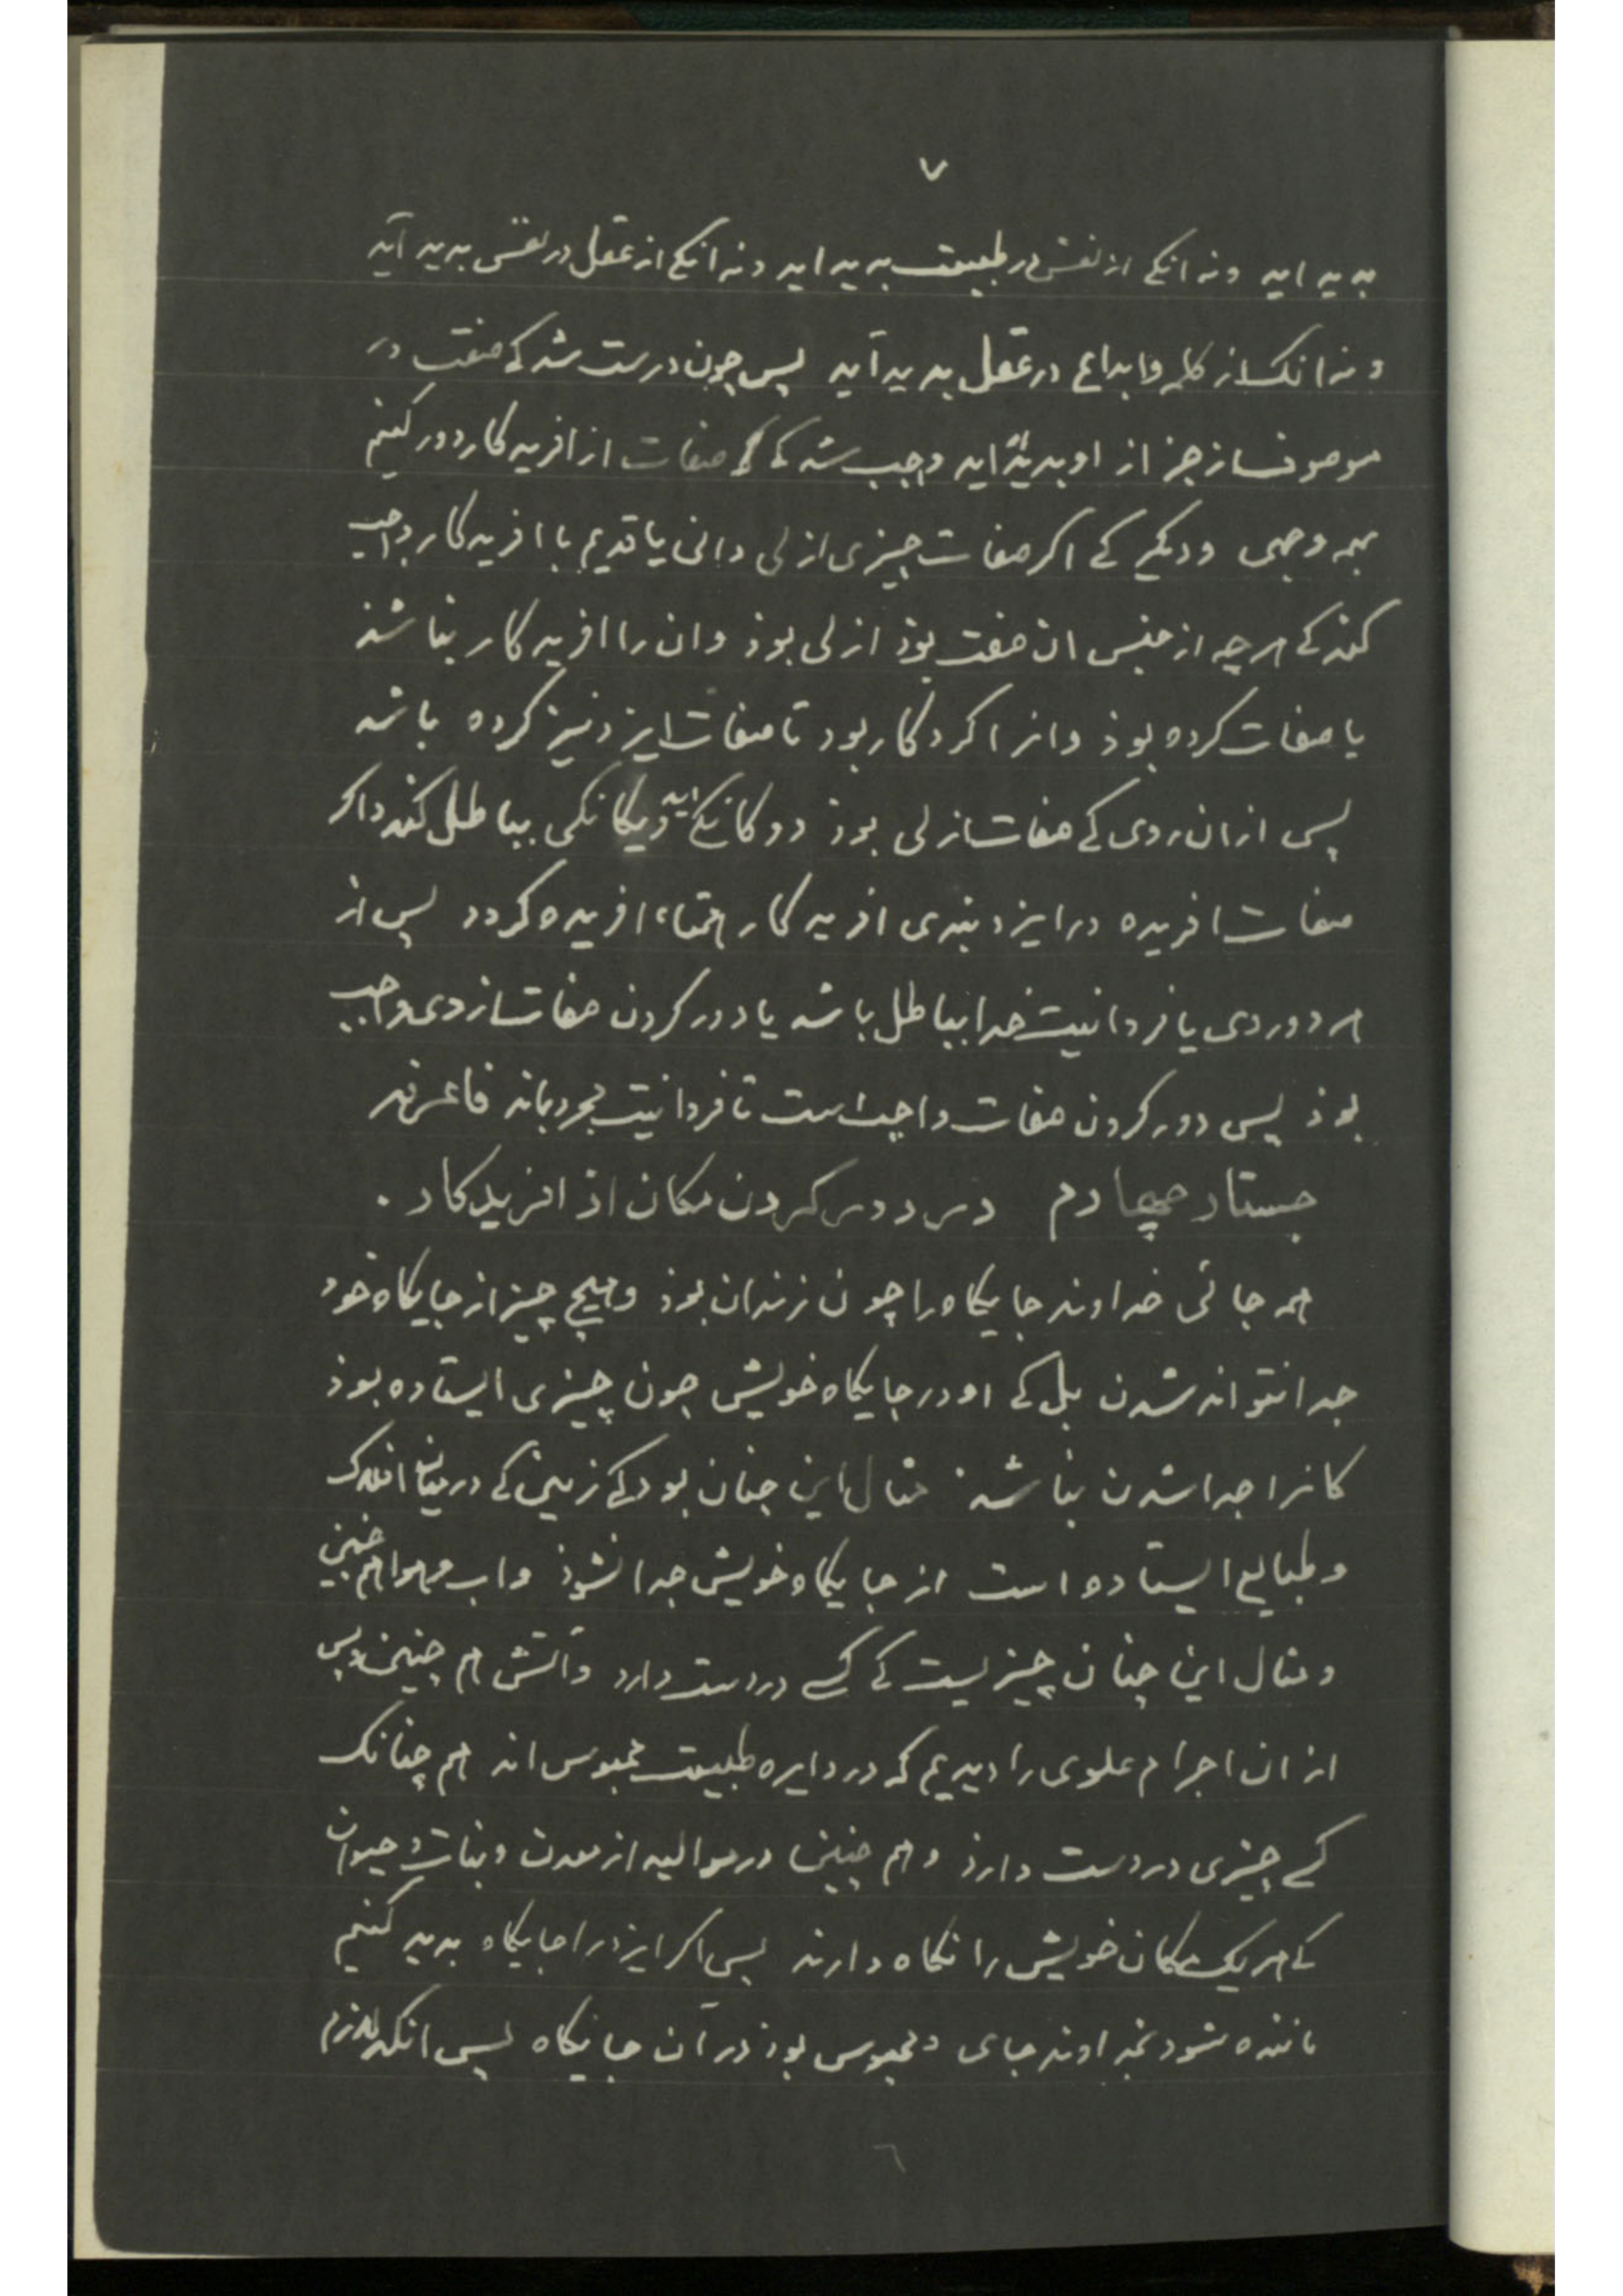 ۷
بدید اید و نه انکی از نفس در طبیعت بدید اید و نه انکی از عقل در نفس بدید آید
و نه انک از کلمه و ابداع در عقل پدید آید پس چون درست شد کی صفت در
موصوف از جز از او بدید اید واجب شد کی صفات از افریدکار دور کنیم
بهمه وجهی و دیکر کی اکر صفات چیزی ازلی دانی یا قدیم با افریدکار واجب
کند کی هرچه از جنس ان صفت بوذ ازلی بوذ و ان را افریدکار نباشذ
یا صفات کرده بوذ و انرا کردکار بود تا صفات ایزد نیز کرده باشد
پس از ان روی کی صفات ازلی بوذ دوکانکی اید و یکانکی باطل کند و اکر
صفات افریده در ایزد بندی افریدکار همتاء افریده کردد پس از
هر دو روی یا فردانیت خدا باطل باشد یا دور کردن صفات از وی واجب
بوذ پس دور کردن صفات واجب است تا فردانیت مجرد بماند فاعرفه
جستار چهارم در دور کردن مکان از افریدکار .
همه جائی خداوند جایکاه را چون زندان بوذ و هیچ چیز از جایکاه خود
جدا نتواند شدن بل کی او در جایکاه خویش چون چیزی ایستاده بوذ
کانرا جدا شدن نباشد مثال این چنان بود کی زمین کی در میان افلاک
و طبایع ایستاده است از جایکاه خویش جدا نشوذ و اب و هوا هم چنین
و مثال این چنان چیزیست کی کسی در دست دارد و آتش هم چنین و پس
از ان اجرام علوی را دیدیم که در دایره طبیعت محبوس اند هم چنانک
کسی چیزی در دست دارذ و هم چنین در موالید از معدن و نبات و حیوان
کی هر یک مکان خویش را نکاه دارند پس اکر ایزد را جایکاه بدید کنیم
ماننده شود بخداوند جای و محبوس بوذ در آن جایکاه پس انکه لازم